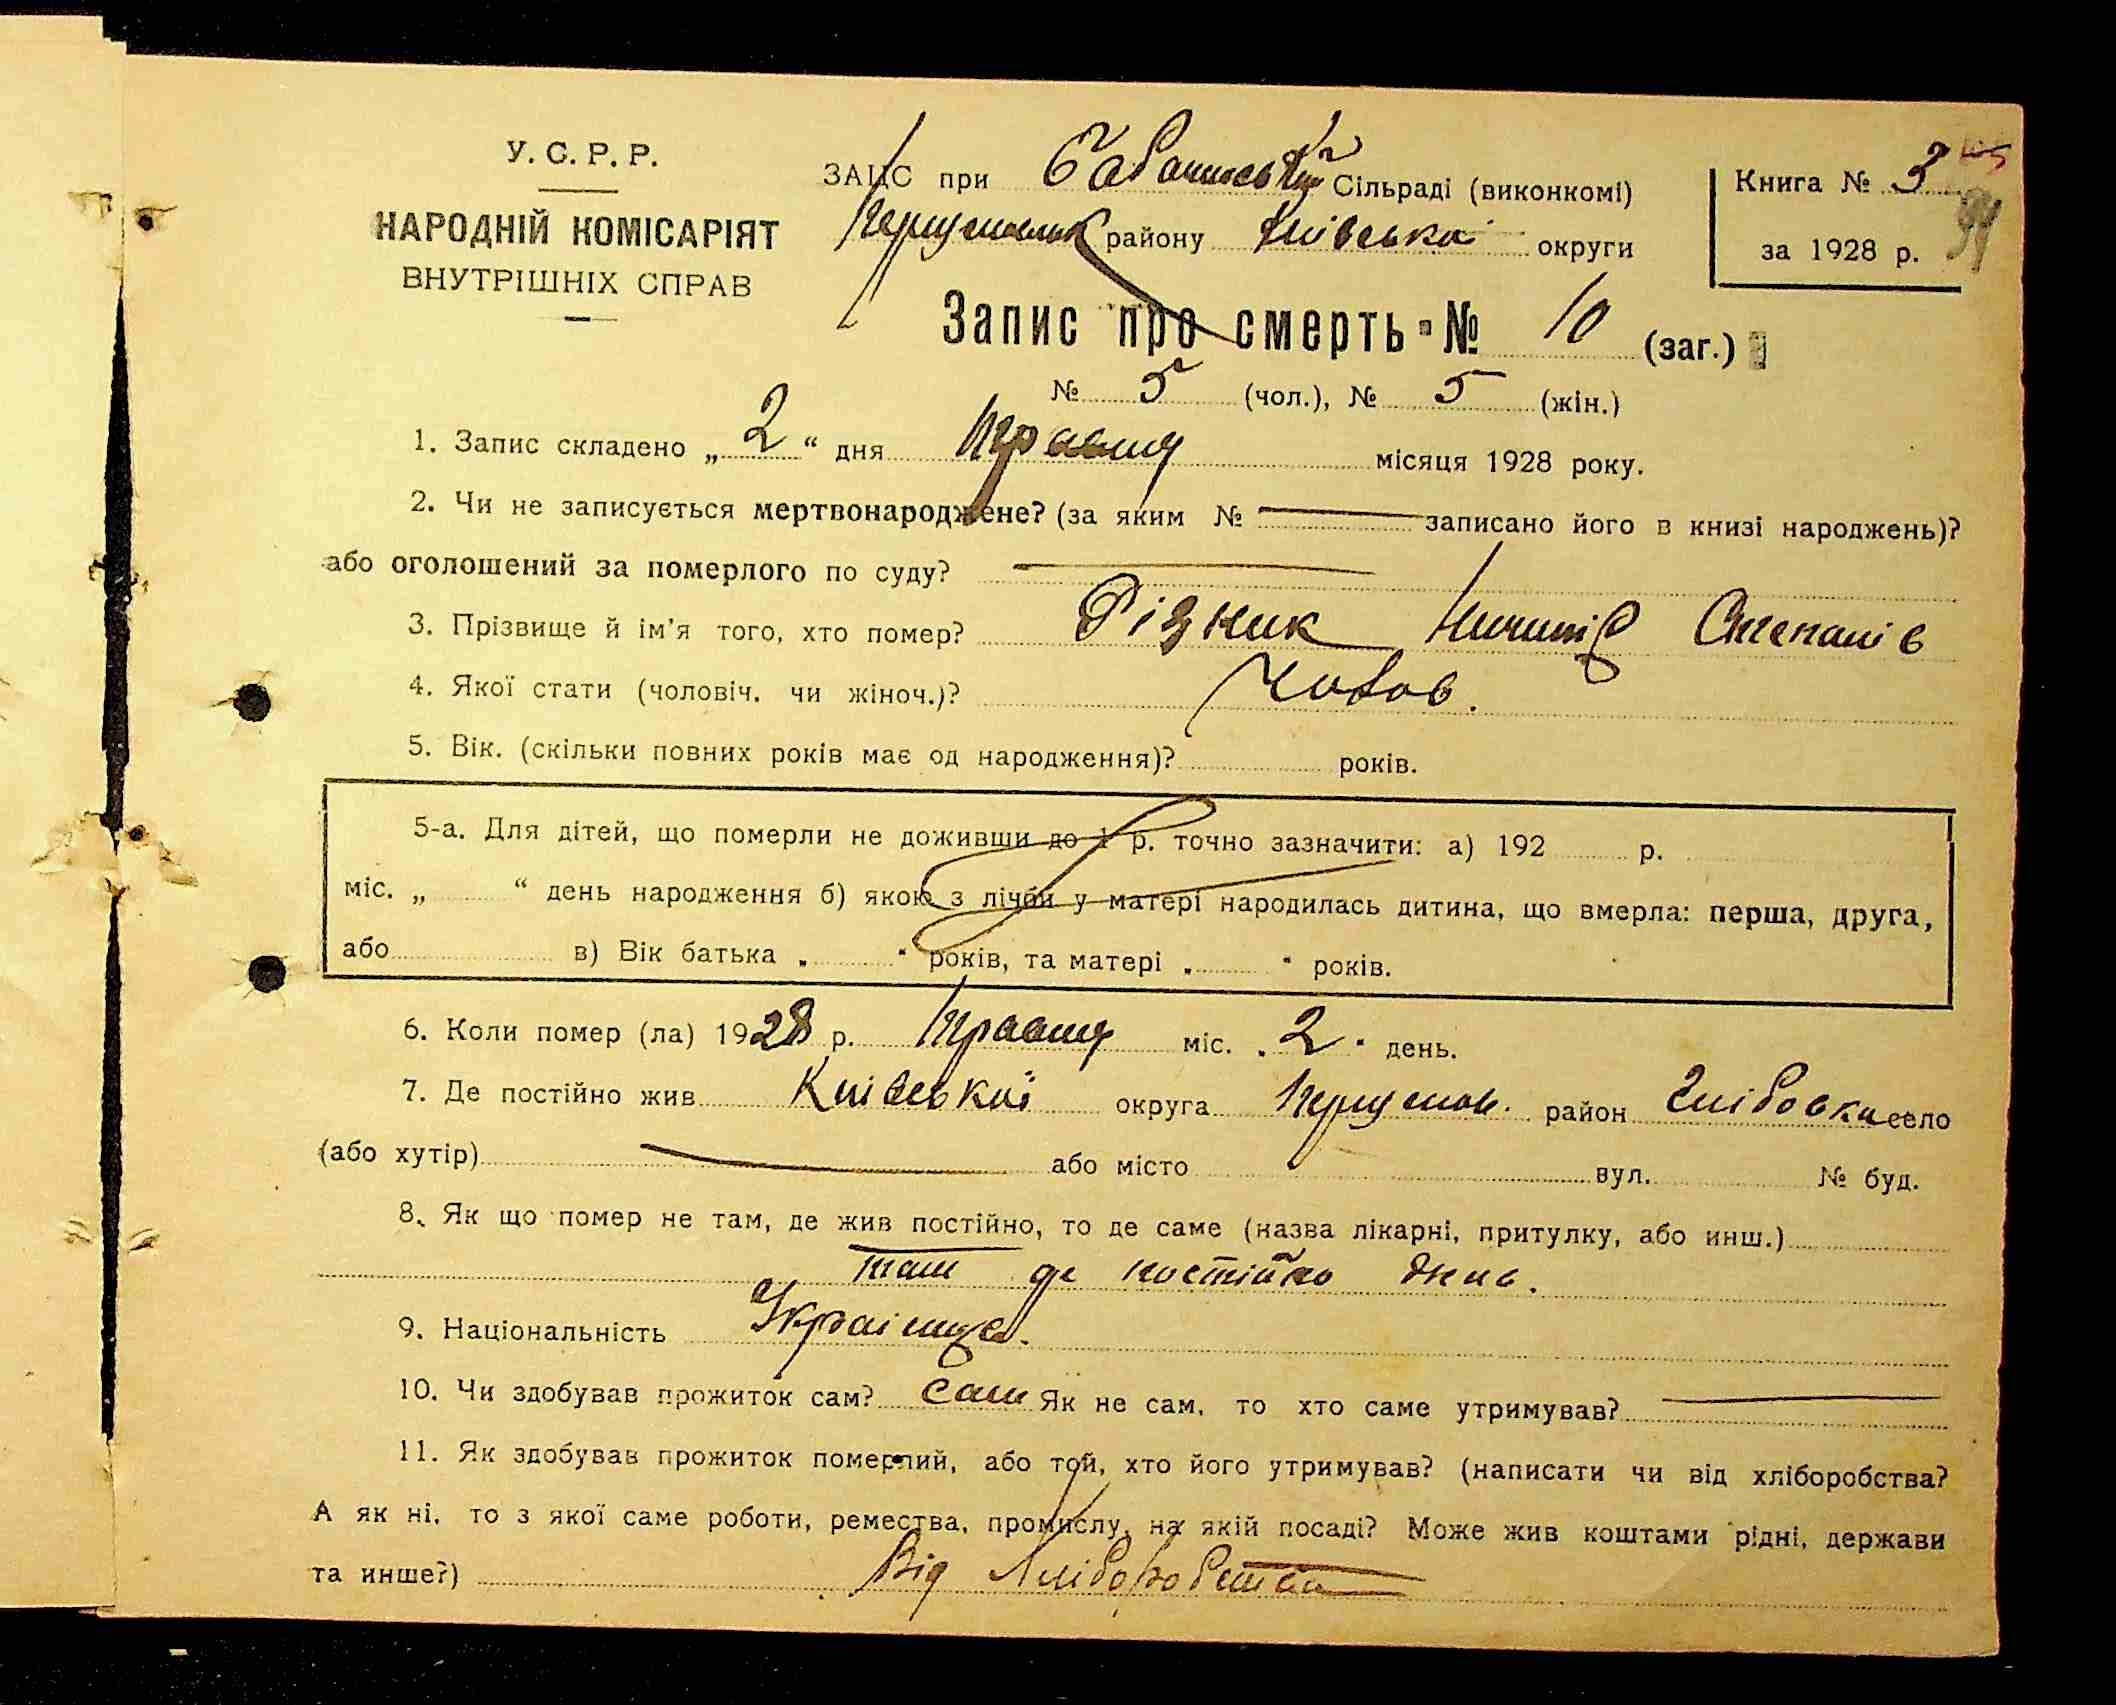 У. С. Р. Р.
НАРОДНІЙ КОМІСАРІЯТ
ВНУТРІШНІХ СПРАВ
ЗАЦС при Сільраді (виконкомі)
району Київської округи
Книга № 3
99
за 1928 р.
Запис про смерть № 10 (заг.)
№ 5 (чол.), № 5 (жін.)
1. Запис складено „ 2 “ дня Травня місяця 1928 року.
2. Чи не записується мертвонароджене? (за яким № — записано його в книзі народжень)?
або оголошений за померлого по суду? —
3. Прізвище й ім’я того, хто помер? Різник Ничипір Степанів
4. Якої стати (чоловіч. чи жіноч.)? Чолов.
5. Вік. (скільки повних років має од народження)? років.
5-а. Для дітей, що померли не доживши до 1 р. точно зазначити: а) 192 р.
міс. „ “ день народження б) якою з лічби у матері народилась дитина, що вмерла: перша, друга,
або в) Вік батька „ “ років, та матері „ “ років.
6. Коли помер (ла) 1928 р. Травня міс. „ 2 “ день.
7. Де постійно жив Київської округа район село
(або хутір) — або місто вул. № буд.
8. Як що помер не там, де жив постійно, то де саме (назва лікарні, притулку, або инш.)
там де постійно жив.
9. Національність Українець.
10. Чи здобував прожиток сам? Сам Як не сам, то хто саме утримував? —
11. Як здобував прожиток померлий, або той, хто його утримував? (написати чи від хліборобства?
А як ні, то з якої саме роботи, ремества, промислу, на якій посаді? Може жив коштами рідні, держави
та инше?) Від Хліборобства